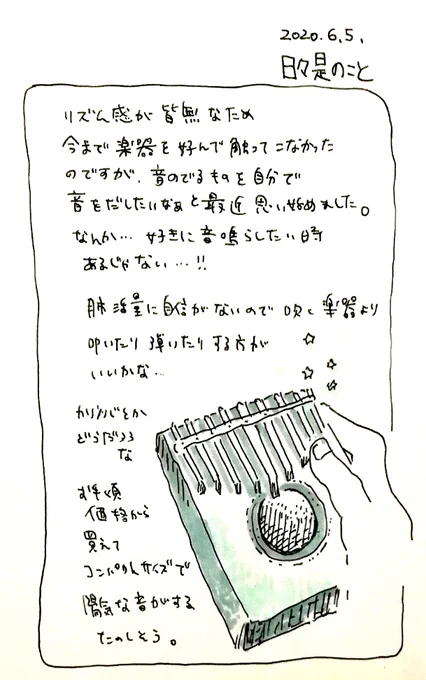 2020.6.5.
日々是のこと
リズム感が皆無なため
今まで楽器を好んで触ってこなかった
のですが、音のでるものを自分で
音をだしたいなぁと最近思い始めました。
なんか…好きに音鳴らしたい時
あるじゃない…!!
肺活量に自信がないので吹く楽器より
叩いたり弾いたりする方が
いいかな…
カリンバとか
どうだろう
な
お手頃
価格から
買えて
コンパクトサイズで
陽気な音がする
たのしそう。